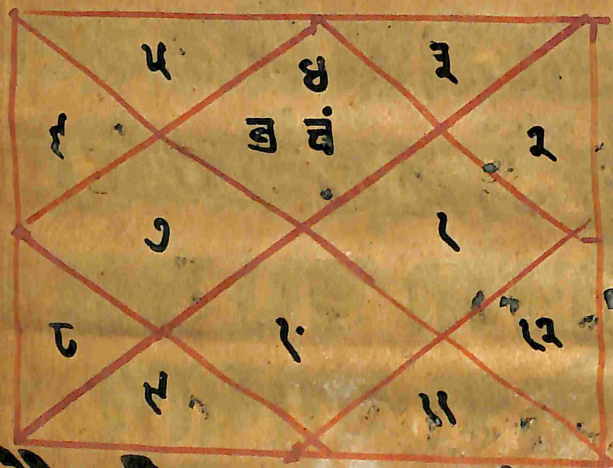 ५ ४ ३
६ बृ चं २
७ १
८ १० १२
९ ११